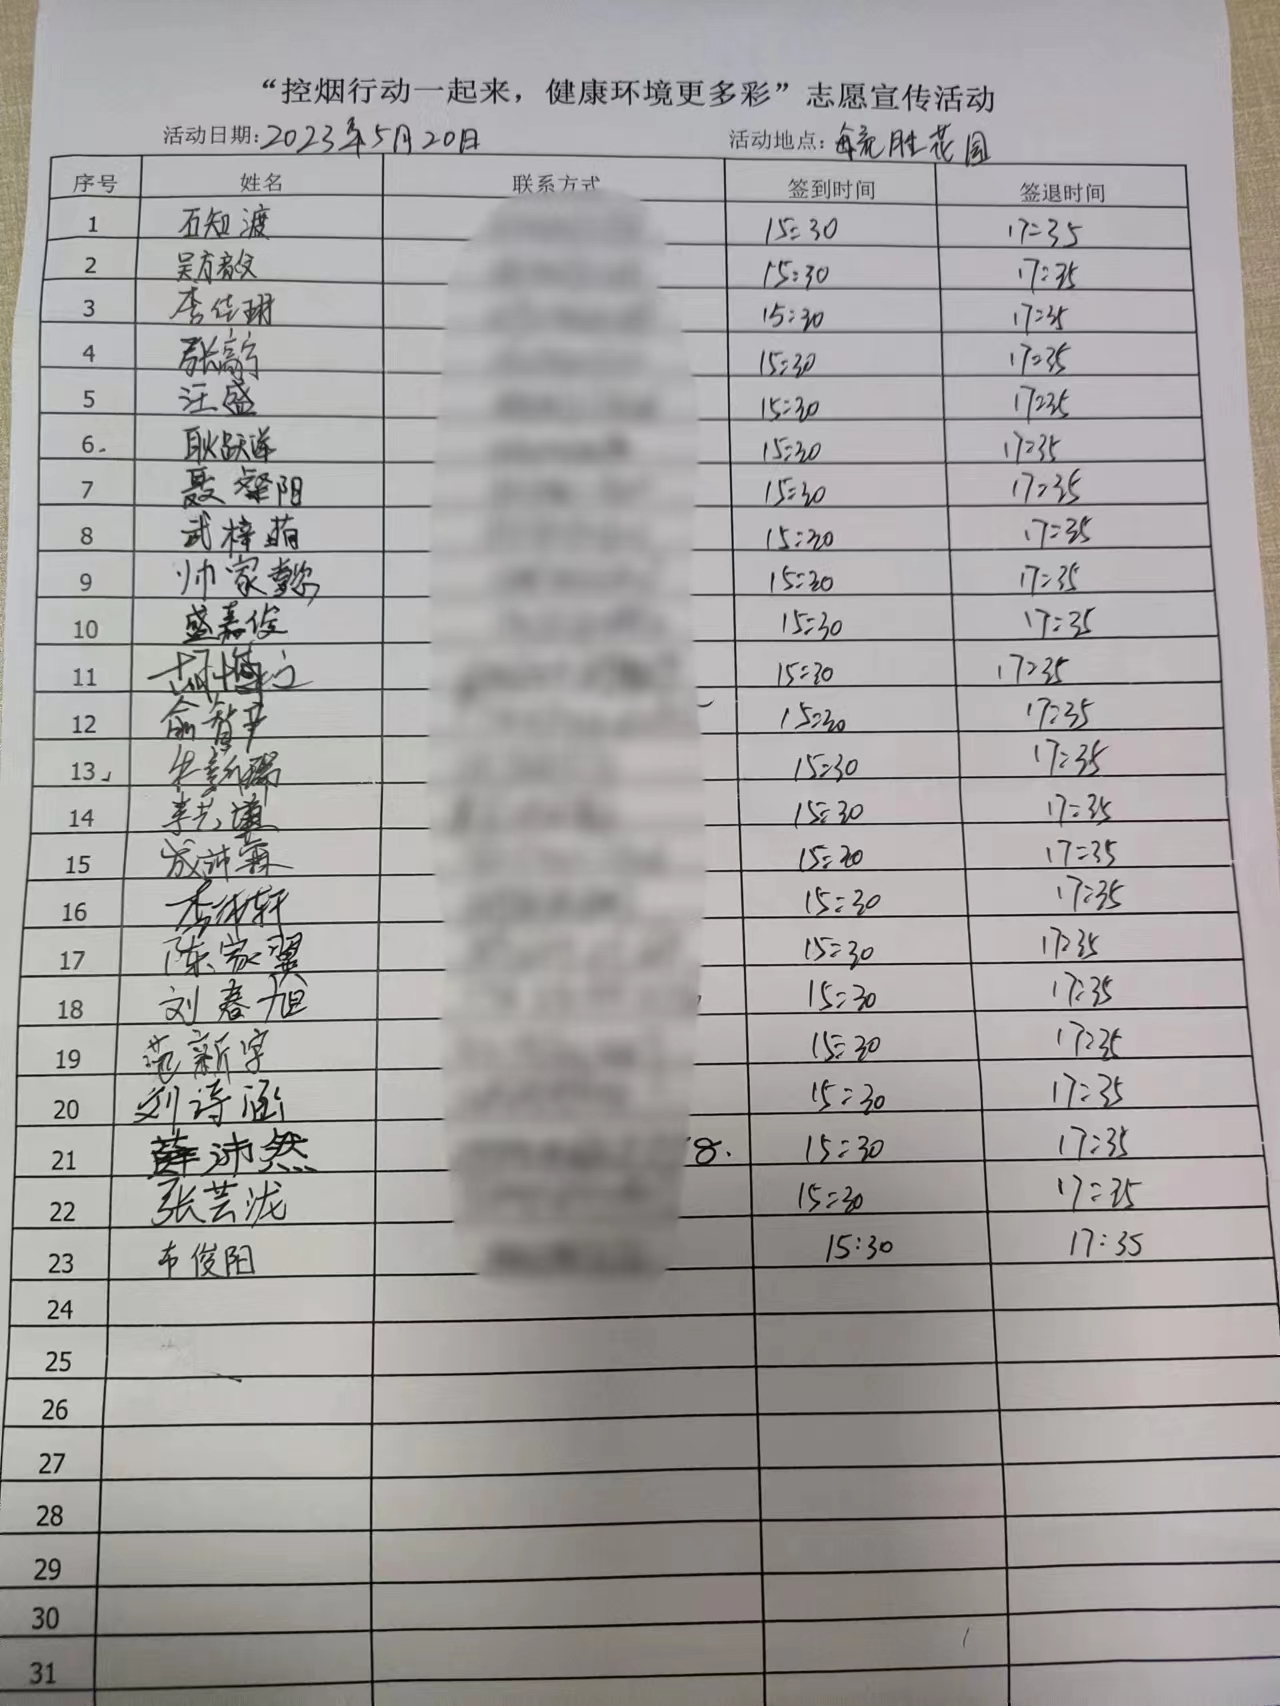 “控烟行动一起来，健康环境更多彩”志愿宣传活动
活动日期:2023年5月20日 活动地点:胜花园
序号 姓名 联系方式 签到时间 签退时间
1 石知渡 15:30 17:35
2 吴方毅文 15:30 17:35
3 李佳玥 15:30 17:35
4 张高宁 15:30 17:35
5 汪盛 15:30 17:35
6. 耿跃洋 15:30 17:35
7 聂璨阳 15:30 17:35
8 武梓萌 15:30 17:35
9 帅家懿 15:30 17:35
10 盛嘉俊 15:30 17:35
11 15:30 17:35
12 俞智 15:30 17:35
13 朱新瑞 15:30 17:35
14 李 15:30 17:35
15 成沛霖 15:30 17:35
16 李轩 15:30 17:35
17 陈家翼 15:30 17:35
18 刘春旭 15:30 17:35
19 范新宇 15:30 17:35
20 刘诗涵 15:30 17:35
21 薛沛然 8. 15:30 17:35
22 张芸泷 15:30 17:35
23 布俊阳 15:30 17:35
24
25
26
27
28
29
30
31